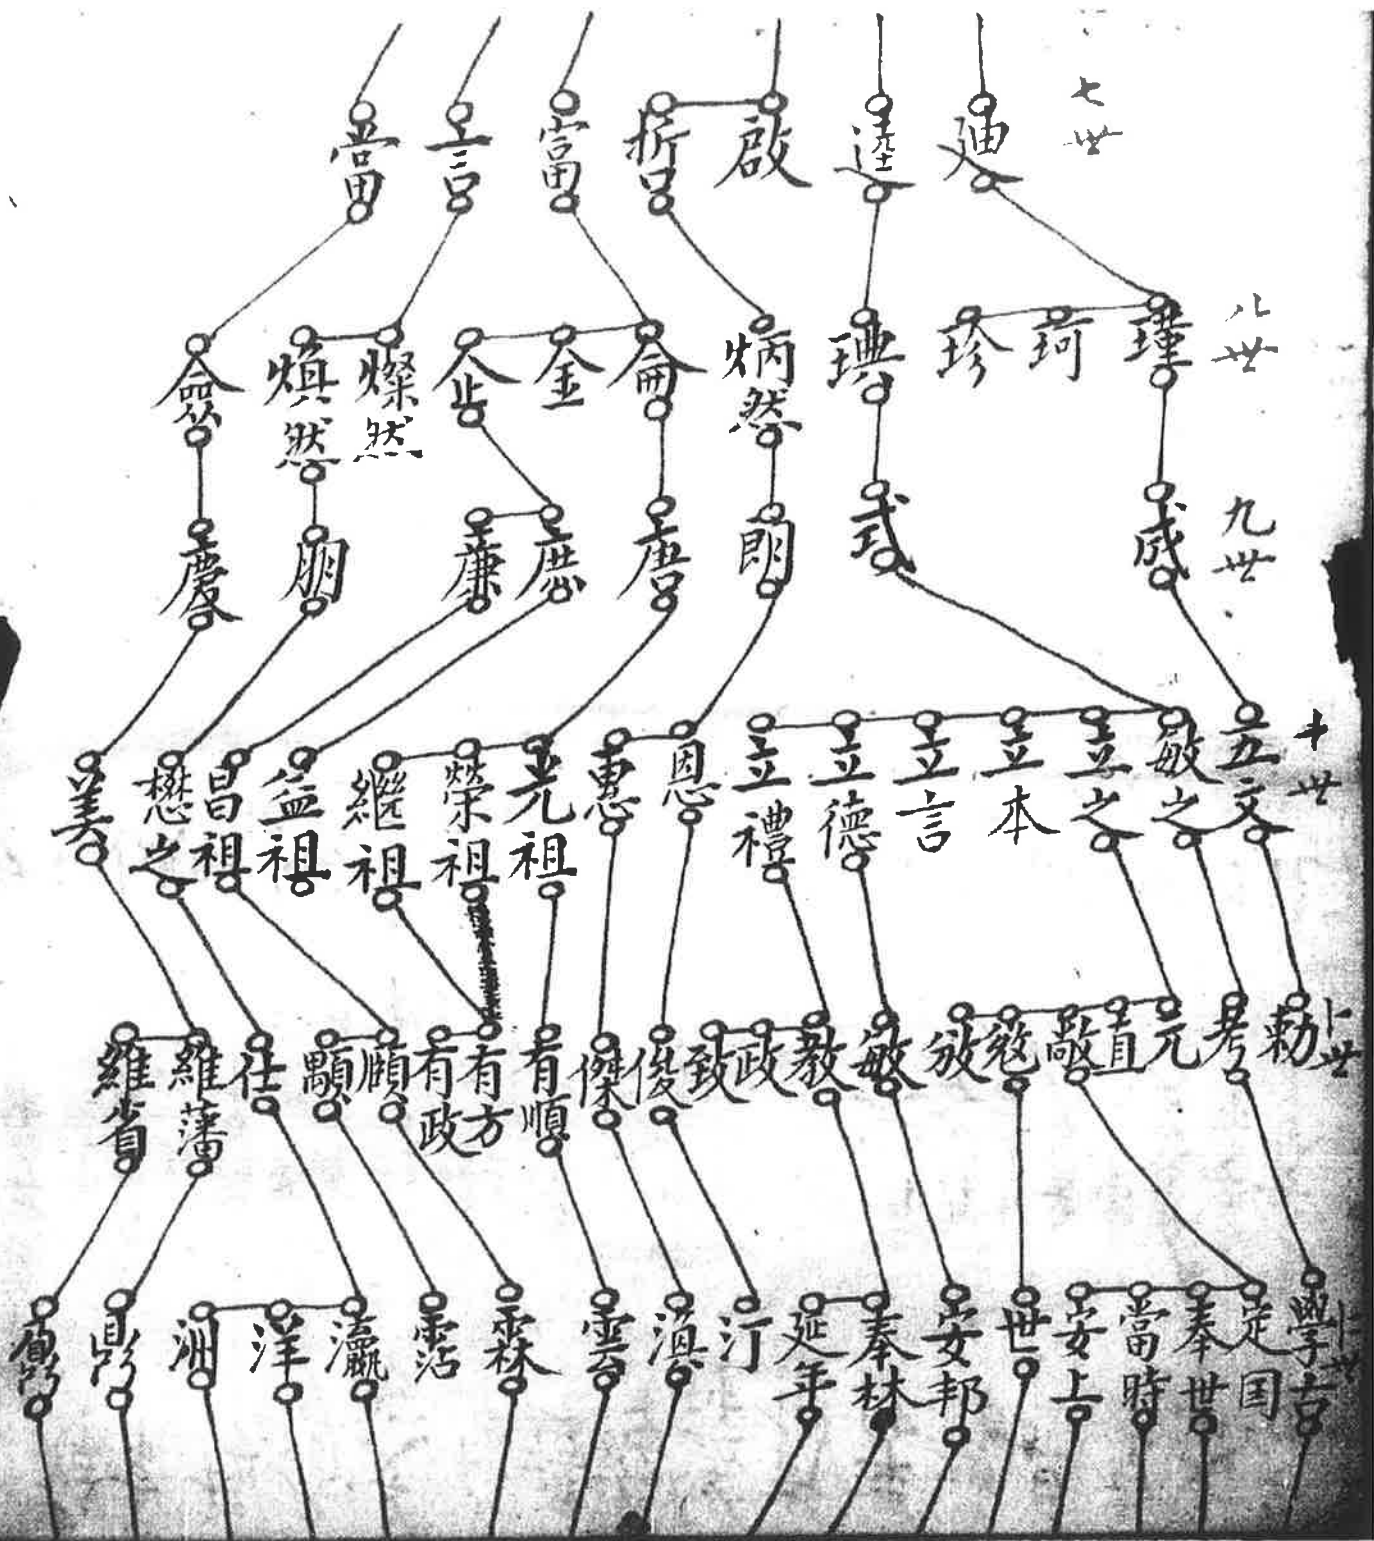 七世
廸
逵
啟
哲
富
言
當
八世
瑾
珂
珍
琠
炳然
侖
金
企
燦然
煥然
僉
九世
成
式
朗
唐
庶
廉
朋
慶
十世
五文
敏之
立之
立本
立言
立德
立禮
恩
惠
光祖
榮祖
繼祖
益祖
昌祖
懋之
美
十一世
勅
考
元
直
敬
敏
教
政
致
俊
傑
有順
有方
有政
顒
任
維藩
維省
十二世
學古
定国
奉世
當時
安上
世
安邦
奉林
延年
汀
滇
雲
霖
霑
瀛
洋
洲
鼎